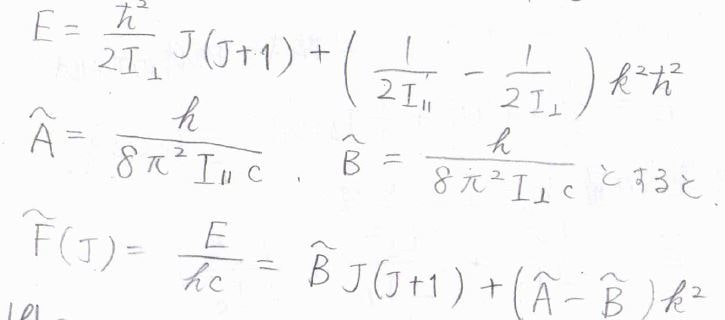 E = ħ²/2I⊥ J(J+1) + (1/2I∥ - 1/2I⊥) k²ħ²
Ã = h/8π²I∥c . B̃ = h/8π²I⊥c とすると.
F̃(J) = E/hc = B̃J(J+1) + (Ã - B̃)k²